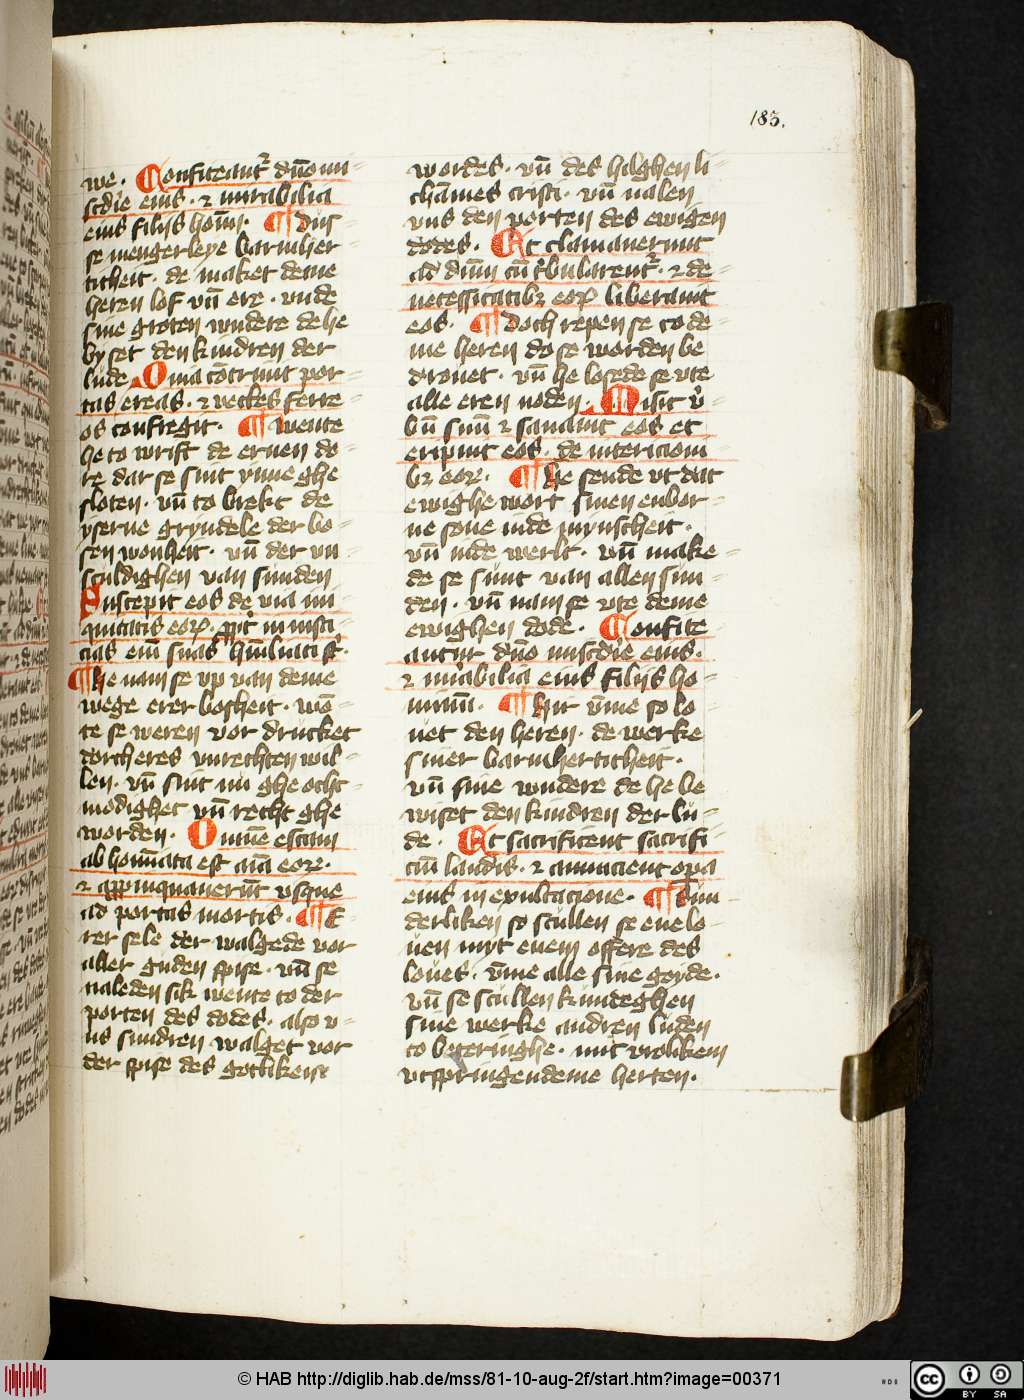 185.
we. Confiteant᷑ dn̄o mi-
scd̓ie eius. ⁊ mirabilia
eius filijs homi᷑. ¶ Dus
se mengerleye barmher-
ticheit. de maket deme
heren lof vn̄ ere. vnde
sine groten wndere de he
byset den kindren der
lude. Q᷑ma cōtriuit por-
tas ereas. ⁊ vectes ferre-
os confregit. ¶ wente
he to wrist de ernen do-
re dar se sint ynne ghe
sloten. vn̄ to brekt de
yserne gryndele der bo-
sen wonheit. vn̄ der vn-
sculdighen van sunden
Suscepit eos de via ini
quitatis eoꝝ. ꝓpt᷑ iniusti
cias em̄ suas hu᷑iliati sr̄.
¶ he nam se vp van deme
wege erer bosheit. wō-
te se weren vor drucket
dorch eres vnrechten wil-
len. vn̄ sint nu ghe ocht-
modighet vn̄ recht ghe
worden. Omnē escam
abhom̄ata est aīa eoꝝ.
⁊ appinquauerūt vsque
ad portas mortis. ¶ E-
rer sele der walgede vor
aller guden spise. vn̄ se
naleden sik wente to der
porten des dodes. also v-
ns sundren walget vor
der spise des gotliken
wordes. vn̄ des hilghen li
chāmes cristi. vn̄ nalen
vns den porten des ewigen
dodes. Et clamauerunt
ad dn̄m cū t᷑bularent᷑. ⁊ de-
necessitatibꝫ eoꝝ liberauit
eos. ¶ Doch repen se to de-
me heren do se worden be
drouet. vn̄ he losede se vte
alle eren noden. Misit v᷑-
bū suū ⁊ sanauit eos et
eripuit eos. de intericioni
bꝫ eoꝝ. ¶ he sende vt dat
ewighe wort sinen enbor-
ne sone inde mynscheit.
vn̄ inde werlt. vn̄ make-
de se sunt van allen sun-
den. vn̄ nam se vte deme
ewighen dode. Confite-
antur dn̄o miscd̓ie eius.
⁊ mirabilia eius filijs ho-
minū. ¶ hir v̄me so lo
uet den heren. de werke
siner barmherticheit.
vn̄ sine wndere de he be
wiset den kindren der lu-
de. Et sacrificent sacrifi
ciū laudis. ⁊ anuncient opa
eius in exultacione. ¶ Sun-
derliken so scullen se eue lo-
uen myt euem offere des
loues. v̄me alle sine goyde.
vn̄ se scullen kundeghen
sine werke andren luden
to beteringhe. mit vrolikem
vtspringendeme herten.
© HAB http://diglib.hab.de/mss/81-10-aug-2f/start.htm?image=00371
HAB
cc BY SA